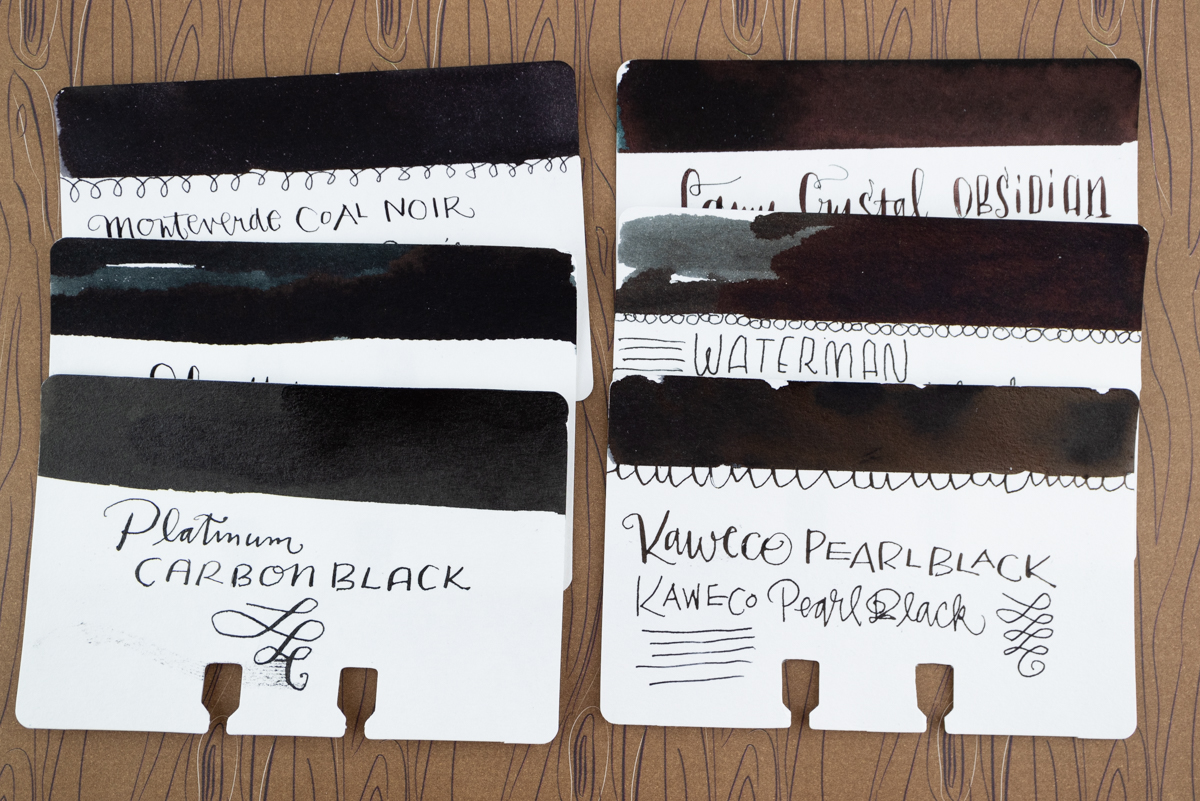 Monteverde COAL NOIR
Lamy Crystal OBSIDIAN
WATERMAN
Platinum
CARBON BLACK
Kaweco PEARL BLACK
KAWECO Pearl Black